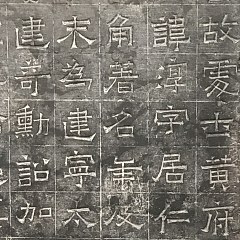 故處士黃府
諱淳字居仁
角著名及
未為建寧太
建奇勳詔加